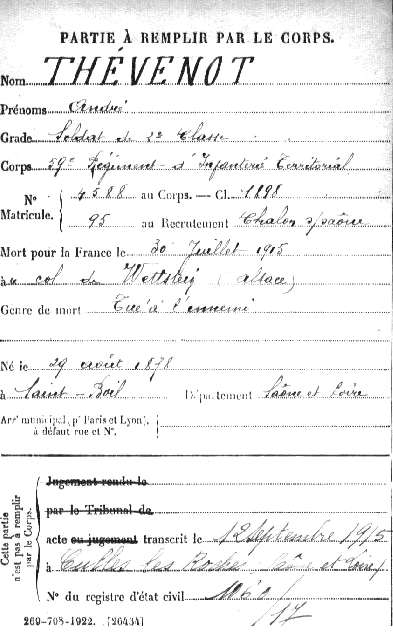 PARTIE À REMPLIR PAR LE CORPS.
Nom THÉVENOT
Prénoms André
Grade Soldat de 2e Classe
Corps 59e Régiment d'Infanterie Territorial
N° Matricule. 4588 au Corps. — Cl. 1898
95 au Recrutement Chalon s/saône
Mort pour la France le 30 Juillet 1915
à au col de Wettsteig (alsace)
Genre de mort Tué à l'ennemi
Né le 29 août 1878
à Saint-Boil Département Saône et Loire
Arrt municipal (pr Paris et Lyon),
à défaut rue et N°.
Cette partie n'est pas à remplir par le Corps.
Jugement rendu le
par le Tribunal de
acte ou jugement transcrit le 12 Septembre 1915
à Culles les Roches Saône et Loire
N° du registre d'état civil
/17
269-708-1922. [26434]